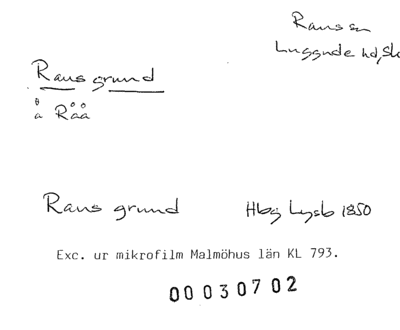 Raus sn
Luggude hd, Sk
Raus grund
å Råå
Raus grund Hbg Lysb 1850
Exc. ur mikrofilm Malmöhus län KL 793.
00030702